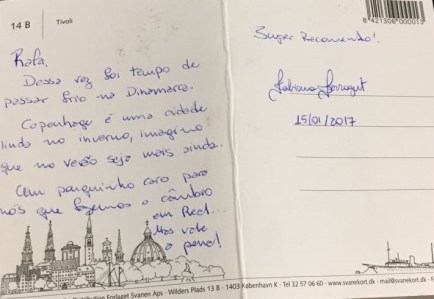 14 B
Tivoli
8 421306 000015
Rafa,
Dessa vez foi tempo de
passar frio na Dinamarca.
Copenhage é uma cidade
linda no inverno, imagino
que no verão seja mais ainda.
Um pouquinho caro para
nós que fazemos o câmbio
em Real...
Mas vale
a pena!
Super Recomendo!
Fabiana Ferragut
15/01/2017
Forlaget Svanen Aps · Wilders Plads 13 B · 1403 København K · Tel 32 57 06 60 · www.svanekort.dk · mail@svanekort.dk